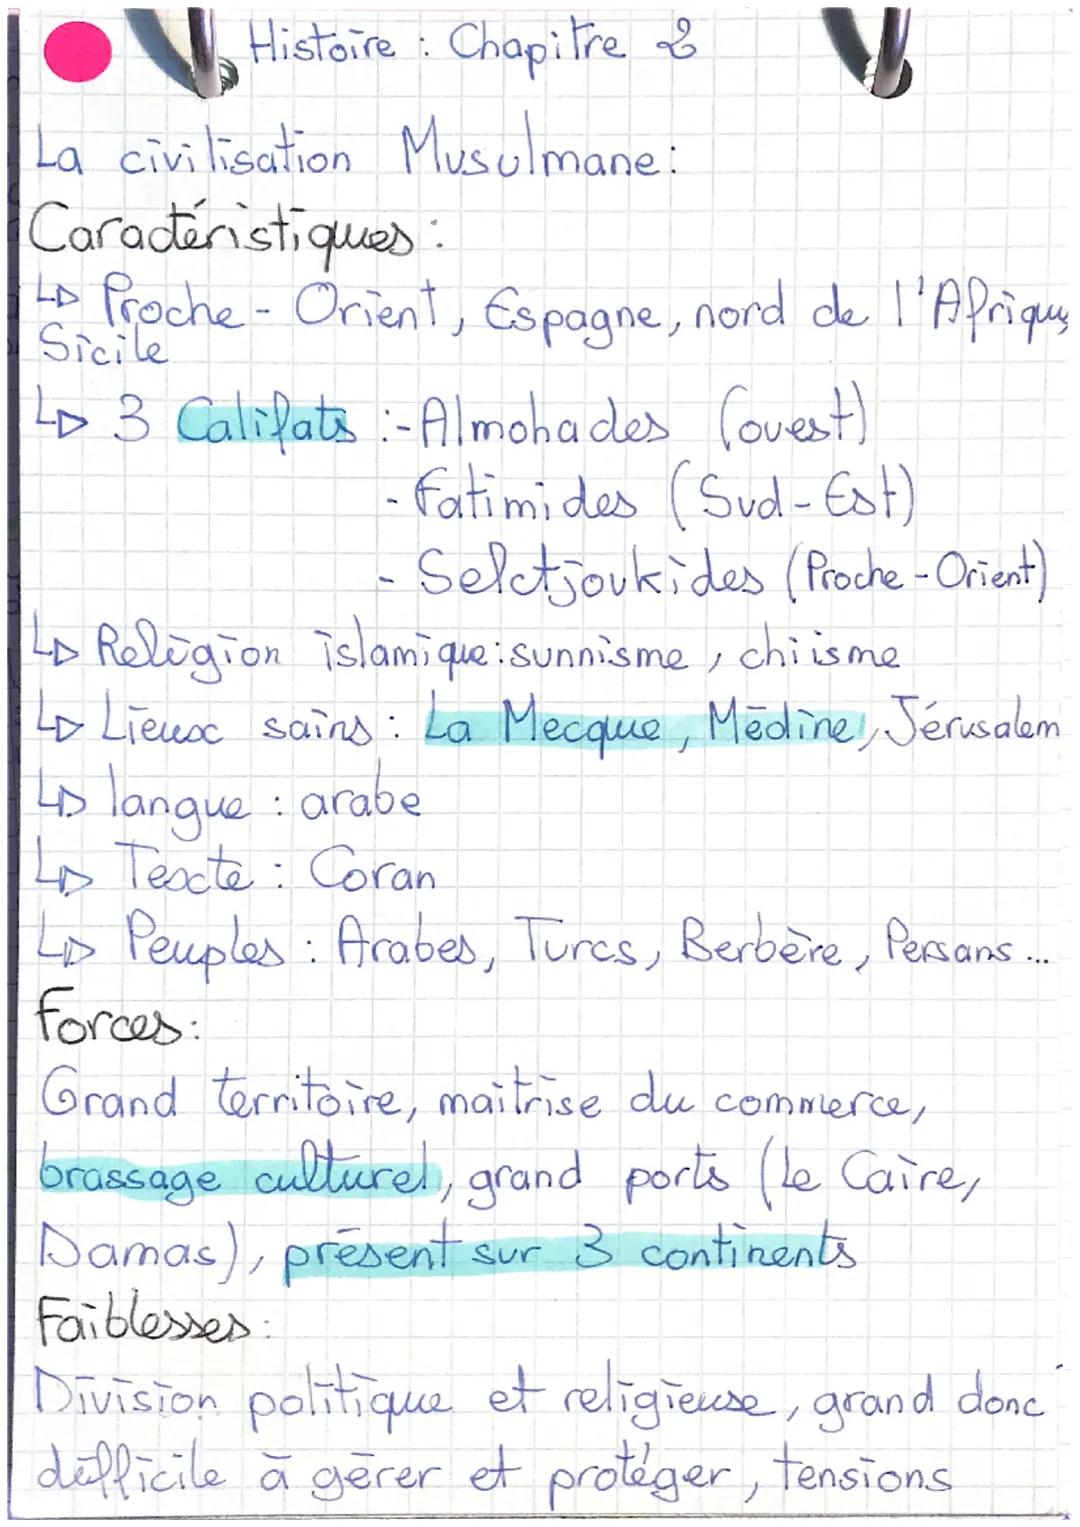 Histoire : Chapitre 2
La civilisation Musulmane :
Caractéristiques :
↳ Proche - Orient, Espagne, nord de l'Afrique,
Sicile
↳ 3 Califats : - Almohades (ouest)
- Fatimides (Sud - Est)
- Selctjoukides (Proche - Orient)
↳ Religion islamique : sunnisme, chiisme
↳ Lieux sains : La Mecque, Médine, Jérusalem
↳ langue : arabe
↳ Texte : Coran
↳ Peuples : Arabes, Turcs, Berbère, Persans ...
Forces :
Grand territoire, maitrise du commerce,
brassage culturel, grand ports (le Caire,
Damas), présent sur 3 continents
Faiblesses :
Division politique et religieuse, grand donc
difficile à gérer et protéger, tensions